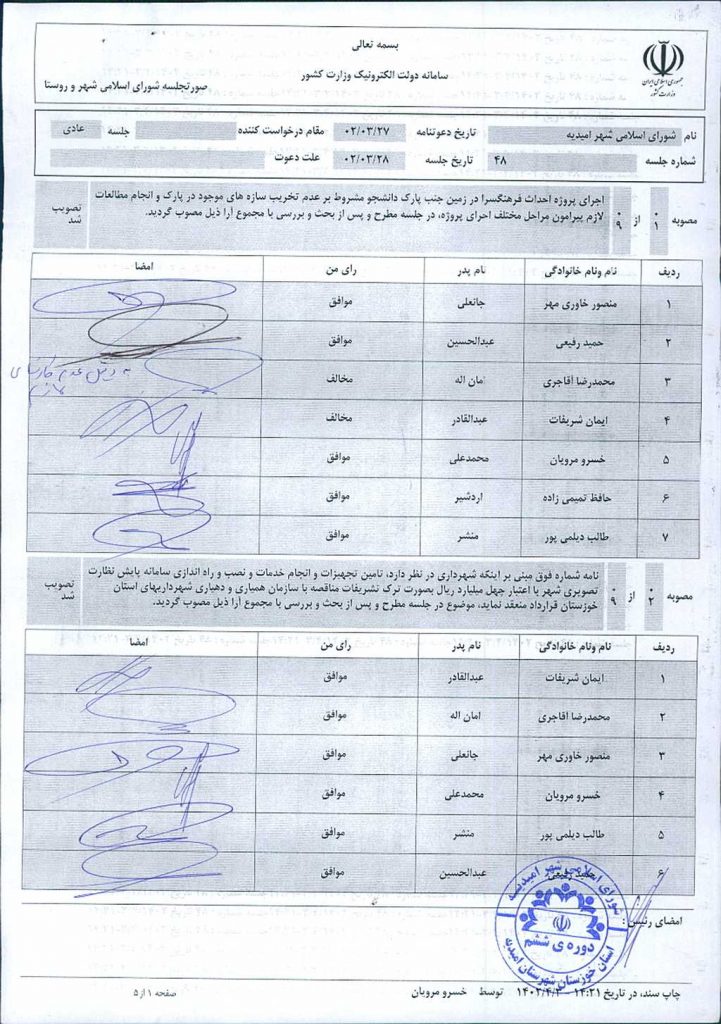 بسمه تعالی
سامانه دولت الکترونیک وزارت کشور
صورتجلسه شورای اسلامی شهر و روستا
جمهوری اسلامی ایران
وزارت کشور
نام شورای اسلامی شهر امیدیه تاریخ دعوتنامه ۰۲/۰۳/۲۷ مقام درخواست کننده جلسه عادی
شماره جلسه ۴۸ تاریخ جلسه ۰۲/۰۳/۲۸ علت دعوت
مصوبه ۰۱ از ۰۹
اجرای پروژه احداث فرهنگسرا در زمین جنب پارک دانشجو مشروط بر عدم تخریب سازه های موجود در پارک و انجام مطالعات
لازم پیرامون مراحل مختلف اجرای پروژه، در جلسه مطرح و پس از بحث و بررسی با مجموع آرا ذیل مصوب گردید.
تصویب شد
ردیف نام ونام خانوادگی نام پدر رای من امضا
۱ منصور خاوری مهر جانعلی موافق
۲ حمید رفیعی عبدالحسین موافق
۳ محمدرضا آقاجری امان اله مخالف
۴ ایمان شریفات عبدالقادر مخالف
۵ خسرو مرویان محمدعلی موافق
۶ حافظ تمیمی زاده اردشیر موافق
۷ طالب دیلمی پور منشر موافق
مصوبه ۰۲ از ۰۹
نامه شماره فوق مبنی بر اینکه شهرداری در نظر دارد، تامین تجهیزات و انجام خدمات و نصب و راه اندازی سامانه پایش نظارت
تصویری شهر با اعتبار چهل میلیارد ریال بصورت ترک تشریفات مناقصه با سازمان همیاری و دهیاری شهرداریهای استان
خوزستان قرارداد منعقد نماید، موضوع در جلسه مطرح و پس از بحث و بررسی با مجموع آرا ذیل مصوب گردید.
تصویب شد
ردیف نام ونام خانوادگی نام پدر رای من امضا
۱ ایمان شریفات عبدالقادر موافق
۲ محمدرضا آقاجری امان اله موافق
۳ منصور خاوری مهر جانعلی موافق
۴ خسرو مرویان محمدعلی موافق
۵ طالب دیلمی پور منشر موافق
۶ حمید رفیعی عبدالحسین موافق
امضای رئیس :
شورای اسلامی شهر امیدیه
دوره ی ششم
استان خوزستان شهرستان امیدیه
چاپ سند، در تاریخ ۱۴:۲۱ - ۱۴۰۲/۴/۳ توسط خسرو مرویان
صفحه ۱ از ۵